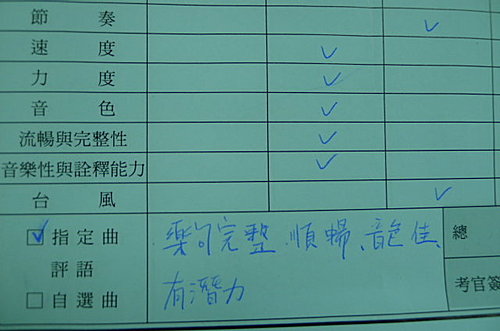 節奏
速度
力度
音色
流暢與完整性
音樂性與詮釋能力
台風
指定曲
評語
自選曲
樂句完整、順暢、音色佳、
有潛力
總
考官簽